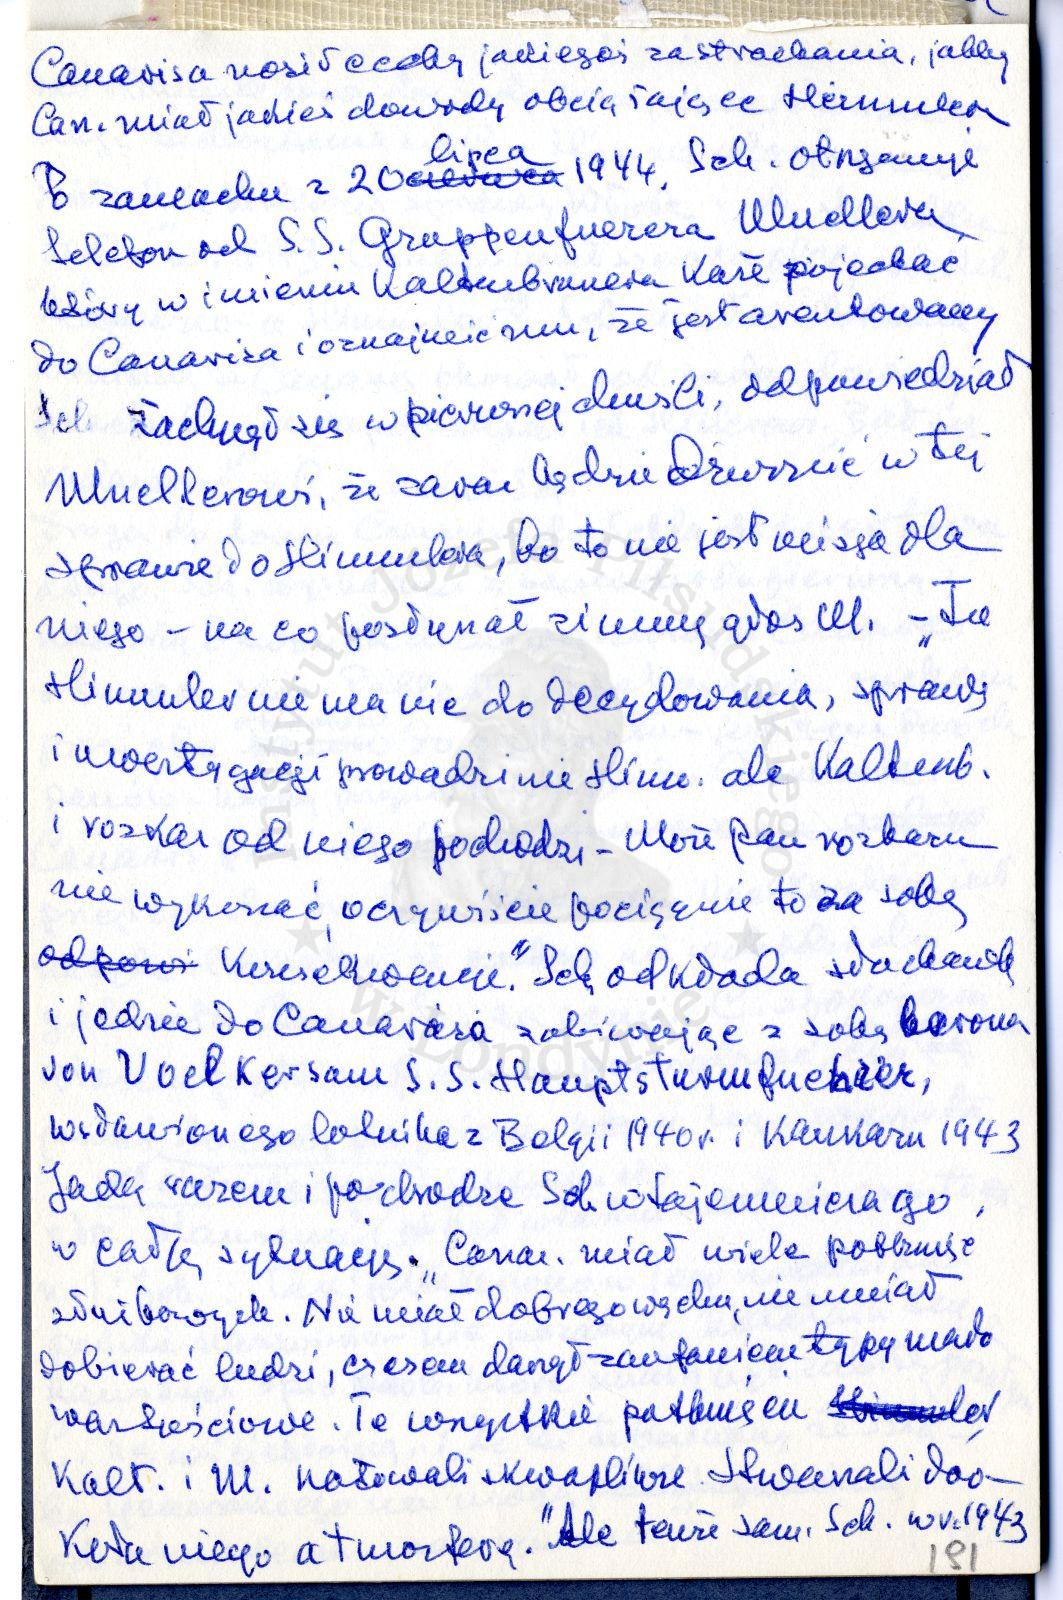 Canarisa nosił cechy jakiegoś zastrachania, jakby
Can. miał jakieś dowody obciążające Himmlera
Po zamachu z 20 czerwca lipca 1944, Sch. otrzymuje
telefon od S.S. Gruppenfuerera Muellera,
który w imieniu Kaltenbrunera każe pojechać
do Canarisa i oznajmić mu, że jest aresztowany
Sch żachnął się w pierwszej chwili, odpowiedział
Muellerowi, że zaraz będzie dzwonić w tej
sprawie do Himmlera, bo to nie jest misja dla
niego – na co posłyszał zimny głos M. – "Tu
Himmler nie ma nic do decydowania, sprawę
i inwestygacji prowadzi nie Himm. ale Kaltenb.
i rozkaz od niego pochodzi – Może Pan rozkazu
nie wykonać, oczywiście pociągnie to za sobą
odpowi konsekwencje." Sch. odkłada słuchawkę
i jedzie do Canarisa zabierając z sobą barona
von Voelkersam S.S. Hauptsturmfuehrer,
wsławionego lotnika z Belgii 1940 r. i Kaukazu 1943
Jadą razem i po drodze Sch wtajemnicza go,
w całą sytuację. „Canar. miał wiele potknięć
służbowych. Nie miał dobrego węchu, nie umiał
dobierać ludzi, czasem darzył zaufaniem typy mało
wartościowe. Te wszystkie potknięcia Himmler
Kalt. i M. notowali skwapliwie stwarzali doo-
koła niego atmosferę." Ale tenże sam. Sch. w r. 1943
191
Instytut Józefa Piłsudskiego
w Londynie